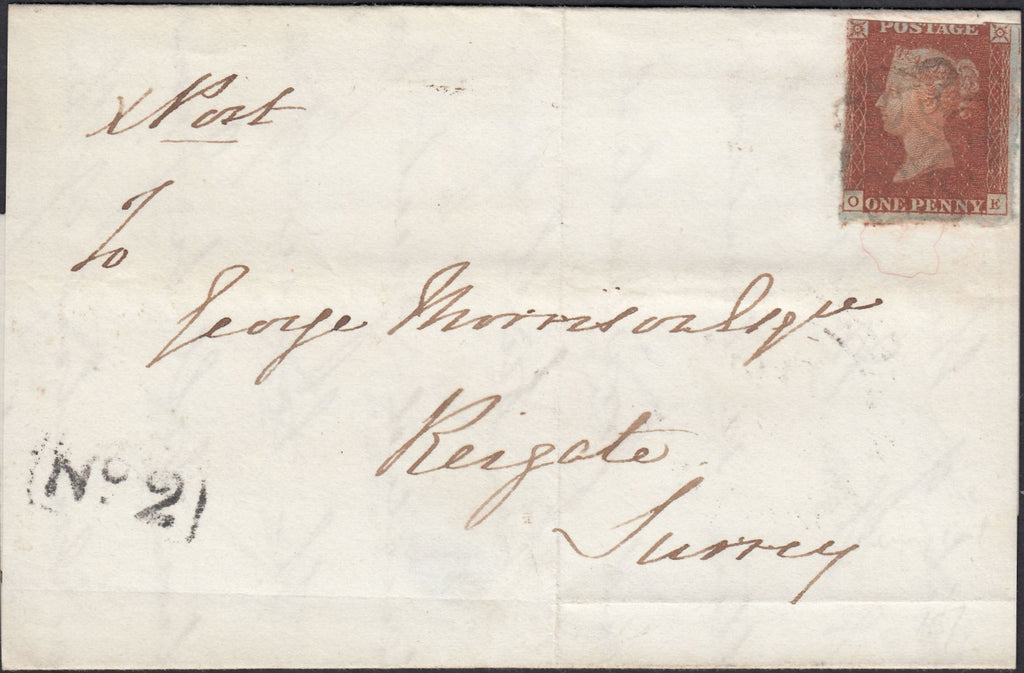 POSTAGE
O ONE PENNY E
X Post
To
George Morrison Esqre
Reigate
Surrey
No 2